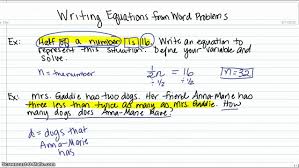 Writing Equations from Word Problems
Ex: Half of a number is 16. Write an equation to
represent this situation. Define your variable and
solve.
n = the number
½n = 16
÷½ ÷½
n = 32
Ex: Mrs. Gaddie has two dogs. Her friend Anna-Marie has
three less than twice as many as Mrs. Gaddie. How
many dogs does Anna-Marie have?
d = dogs that
Anna-Marie
has